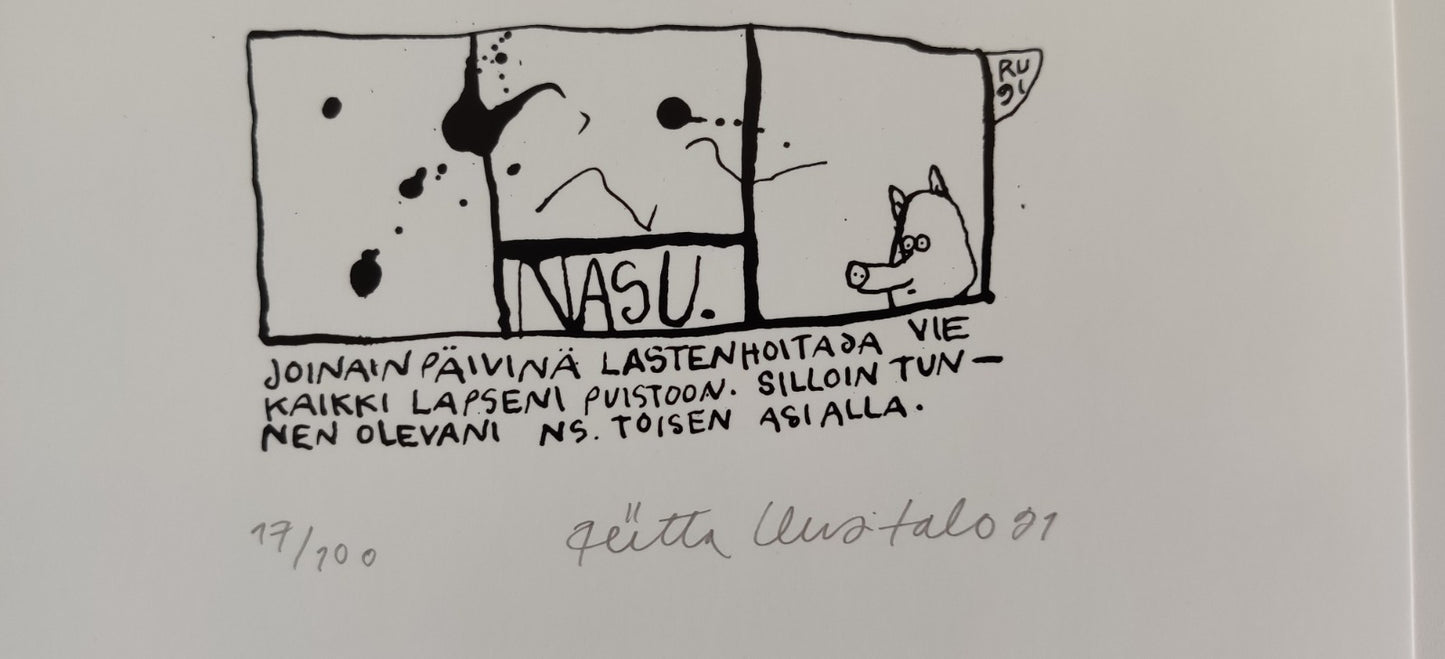 RU
91
NASU.
JOINAIN PÄIVINÄ LASTENHOITAJA VIE
KAIKKI LAPSENI PUISTOON. SILLOIN TUN-
NEN OLEVANI NS. TOISEN ASIALLA.
17/100
Riitta Uusitalo 91